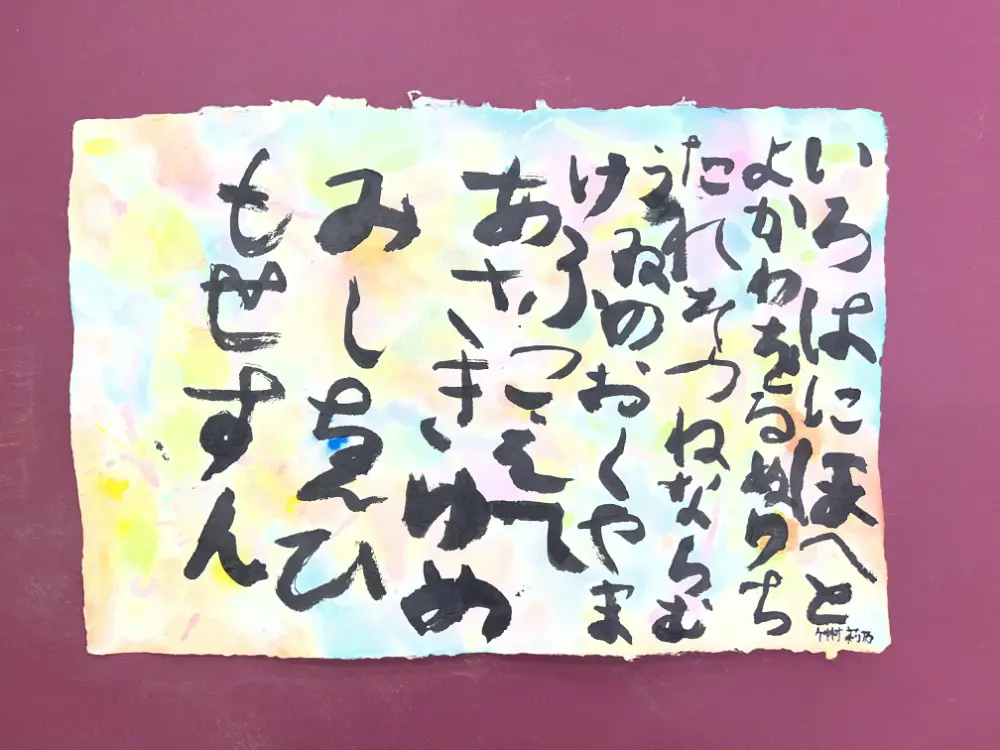 いろはにほへと
よかわをるぬりち
たれそつねならむ
うゐのおくやま
けふこえて
あさきゆめ
みしゑひ
もせすん
竹村莉乃